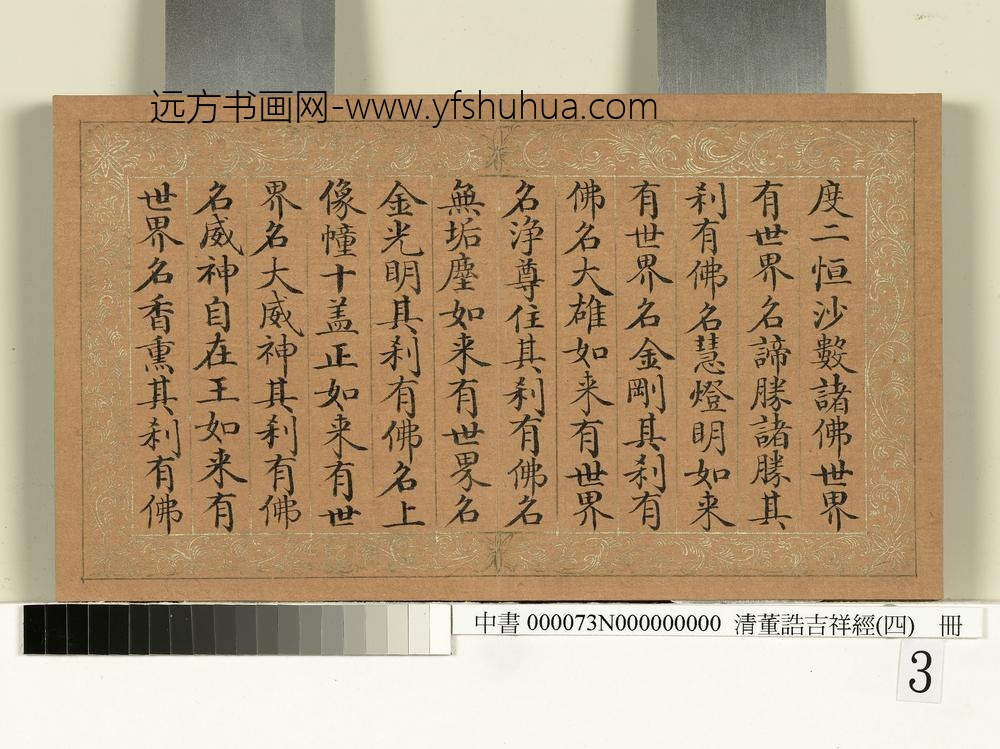 远方书画网-www.yfshuhua.com
度二恒沙數諸佛世界
有世界名諦勝諸勝其
刹有佛名慧燈明如来
有世界名金剛其刹有
佛名大雄如来有世界
名淨尊住其刹有佛名
無垢塵如来有世界名
金光明其刹有佛名上
像幢十盖正如来有世
界名大威神其刹有佛
名威神自在王如来有
世界名香熏其刹有佛
中書 000073N000000000 清董誥吉祥經(四) 冊
3